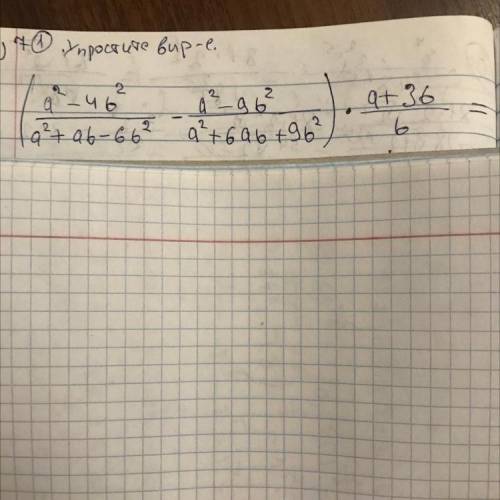 ) 7 ① Упростите выр-е.
(a² - 4b² / a² + ab - 6b² - a² - 9b² / a² + 6ab + 9b²) · a + 3b / b =